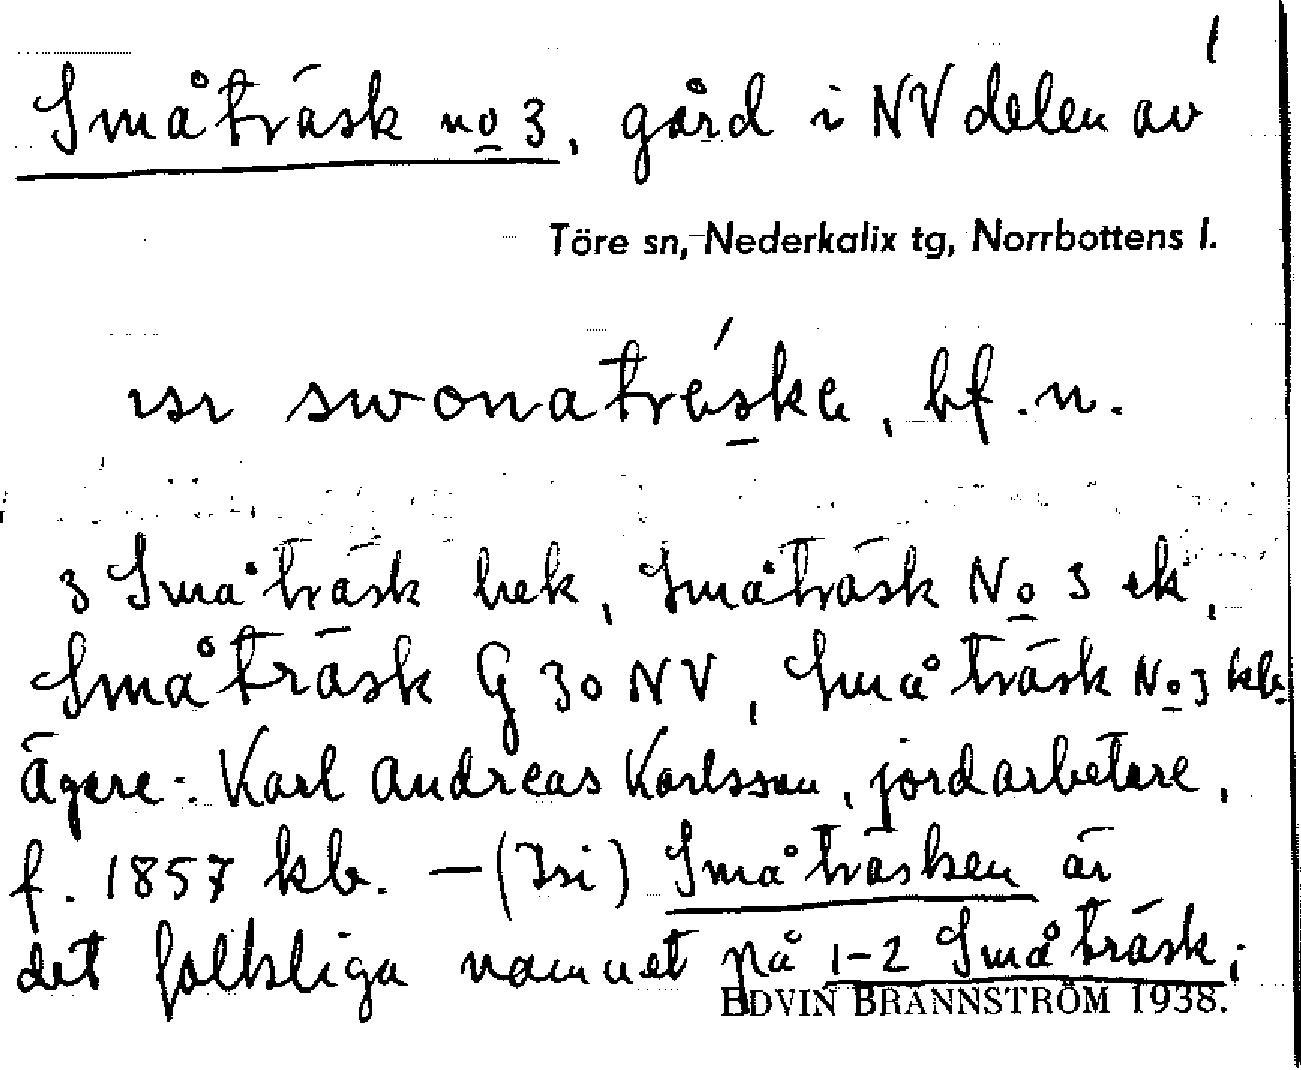 1
Småträsk no 3, gård i NV delen av
Töre sn, Nederkalix tg, Norrbottens l.
ısı swonatrḗske, bf. n.
3 Småträsk hek, Småträsk No 3 ek,
Småträsk G 30 NV, Småträsk No 3 kb.
Ägare: Karl Andreas Karlsson, jordarbetare,
f. 1857 kb. – (Isi) Småträsken är
det folkliga namnet på 1-2 Småträsk;
EDVIN BRÄNNSTRÖM 1938.